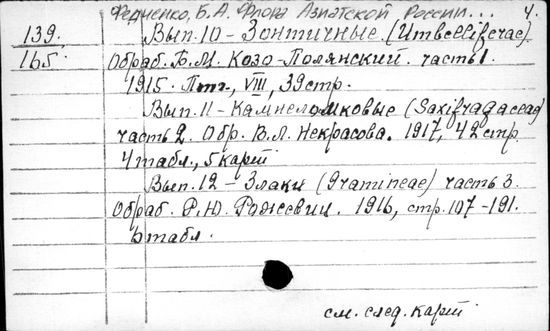 Федченко, Б.А. Флора Азиатской России... 4.
139. Вып. 10 – Зонтичные (Umbelliferae).
165 Обраб. Б.М. Козо-Полянский. часть 1.
1915. Птг., VIII, 39 стр.
Вып. 11 – Камнеломковые (Saxifragaceae)
часть 2. Обр. В.Л. Некрасова. 1917, 42 стр.
4 табл., 5 карт
Вып. 12 – Злаки (Gramineae) часть 3.
Обраб. Р.Ю. Рожевиц. 1916, стр. 107–191.
6 табл.
см. след. карт